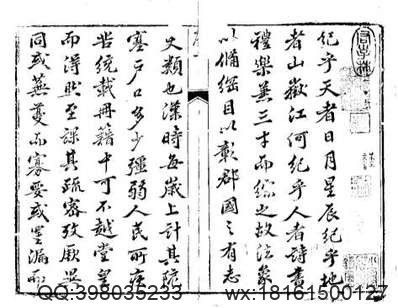 紀乎天者日月星辰紀乎地
者山嶽江河紀乎人者詩書
禮樂兼三才而綜之故法象
以備綱目以彰郡國之有志
史類也漢時每歲上計其阨
塞戶口多少彊弱人民所疾
苦統載冊籍中可不越堂皇
而得時至課其疏密攷厥異
同或蕪蔓而寡要或罣漏而
QQ:398035233
wx:18161500127